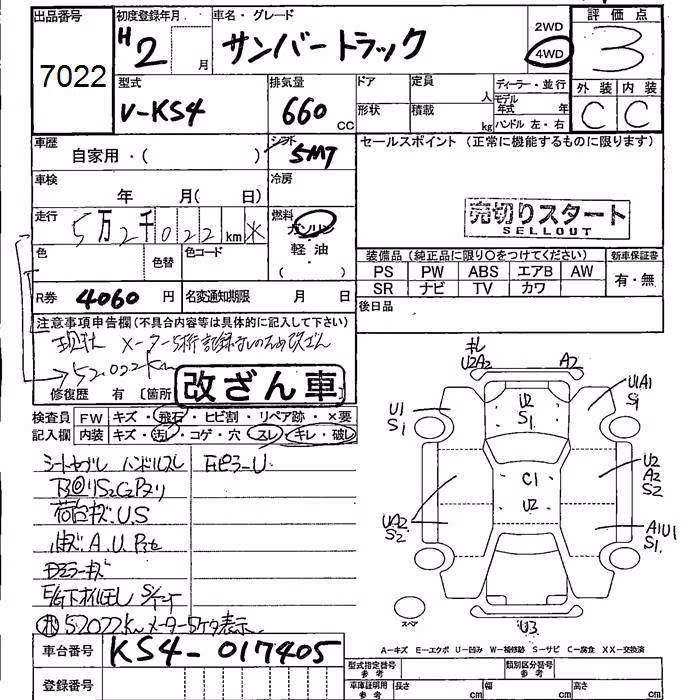 出品番号 初度登録年月 車名・グレード 2WD 評価点
7022 H2 月 サンバートラック 4WD 3
型式 排気量 ドア 定員 人 ディーラー・並行 外装 内装
V-KS4 660 CC 形状 積載 kg モデル年式 年 C C
ハンドル 左・右
車歴 自家用・( ) シフト 5MT セールスポイント (正常に機能するものに限ります)
車検 年 月( 日) 冷房
走行 5万2千022km※ 燃料 ガソリン 売切りスタート
SELLOUT
軽油
( )
色 色替 色コード 装備品(純正品に限り○をつけてください) 新車保証書
PS PW ABS エアB AW 有・無
SR ナビ TV カワ
R券 4060円 名変通知期限 月 日 後日品
注意事項申告欄(不具合内容等は具体的に記入して下さい)
メーター5桁記録なしのため改ざん
52,022Km
修復歴 有 [箇所 改ざん車
検査員 FW キズ・飛石・ヒビ割・リペア跡・×要
記入欄 内装 キズ・汚レ・コゲ・穴・スレ・キレ・破レ
ハンドルスレ
荷台キズ.U.S
A.U.
E/G下オイル
52022Kmメーター5ケタ表示
キレ
U2A2 A2
U1 S1 U2 S1 U1A1 S1
C1 U2 U2 A2 S2
UA2 S2 A1U1 S1
スペア U3
A-キズ E-エクボ U-凹み W-補修跡 S-サビ C-腐食 XX-交換済
車台番号 KS4-017405 型式指定番号 参考 類別区分番号 参考
登録番号 車庫証明用 参考 長さ cm 幅 cm 高さ cm